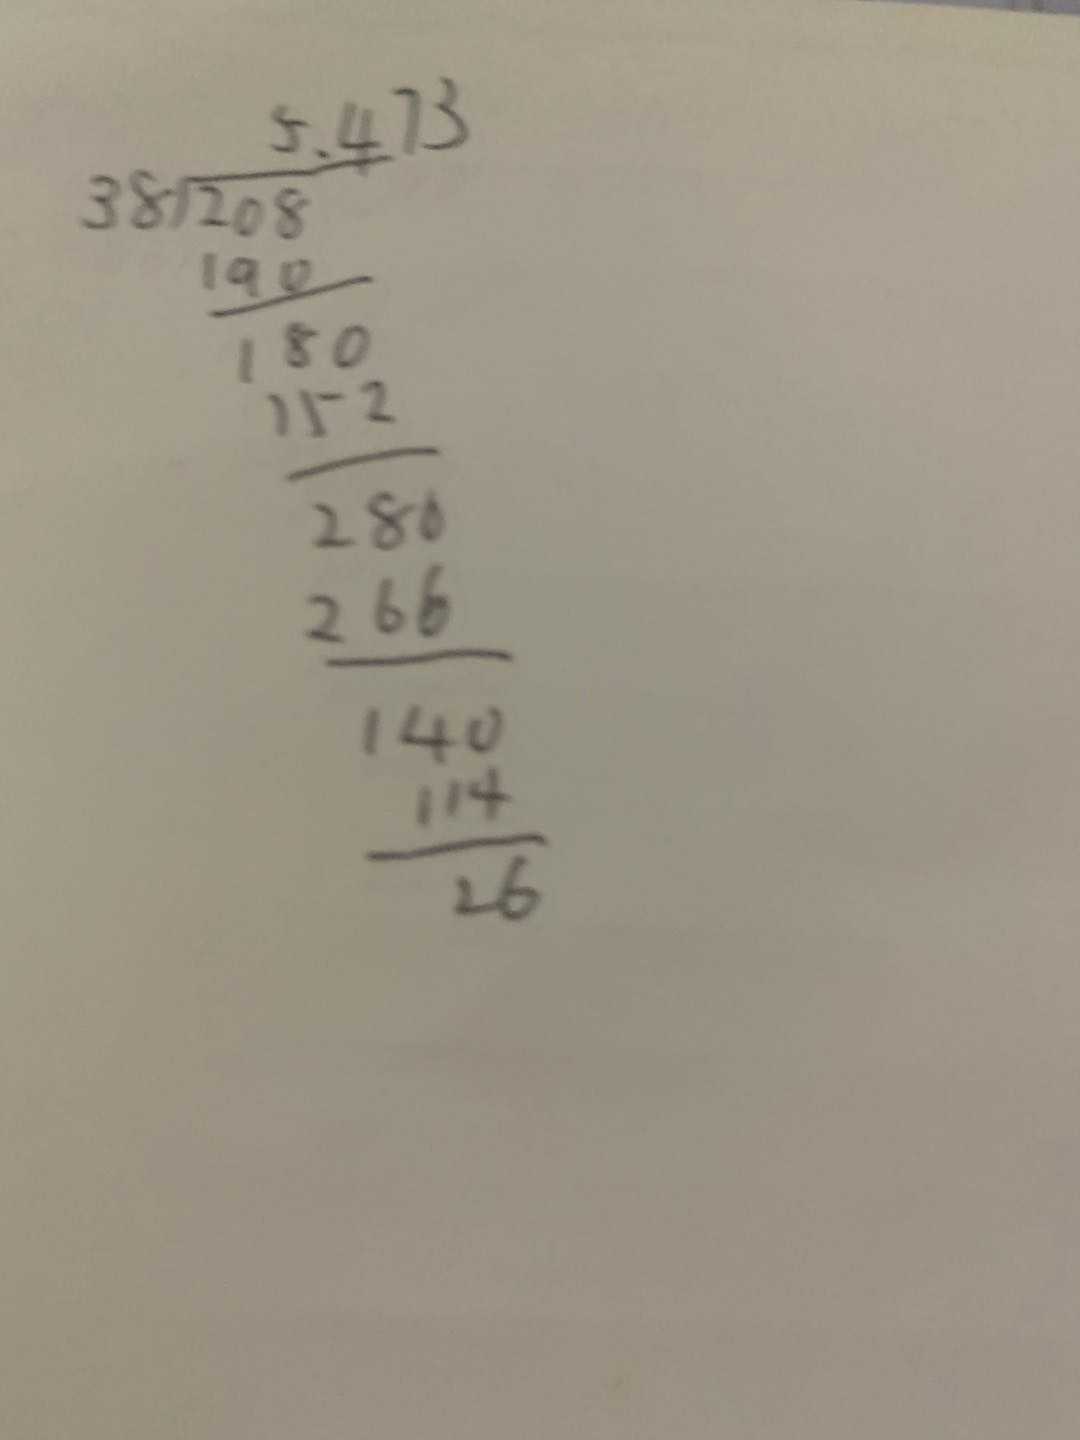 5.473
38)208
190
180
152
280
266
140
114
26